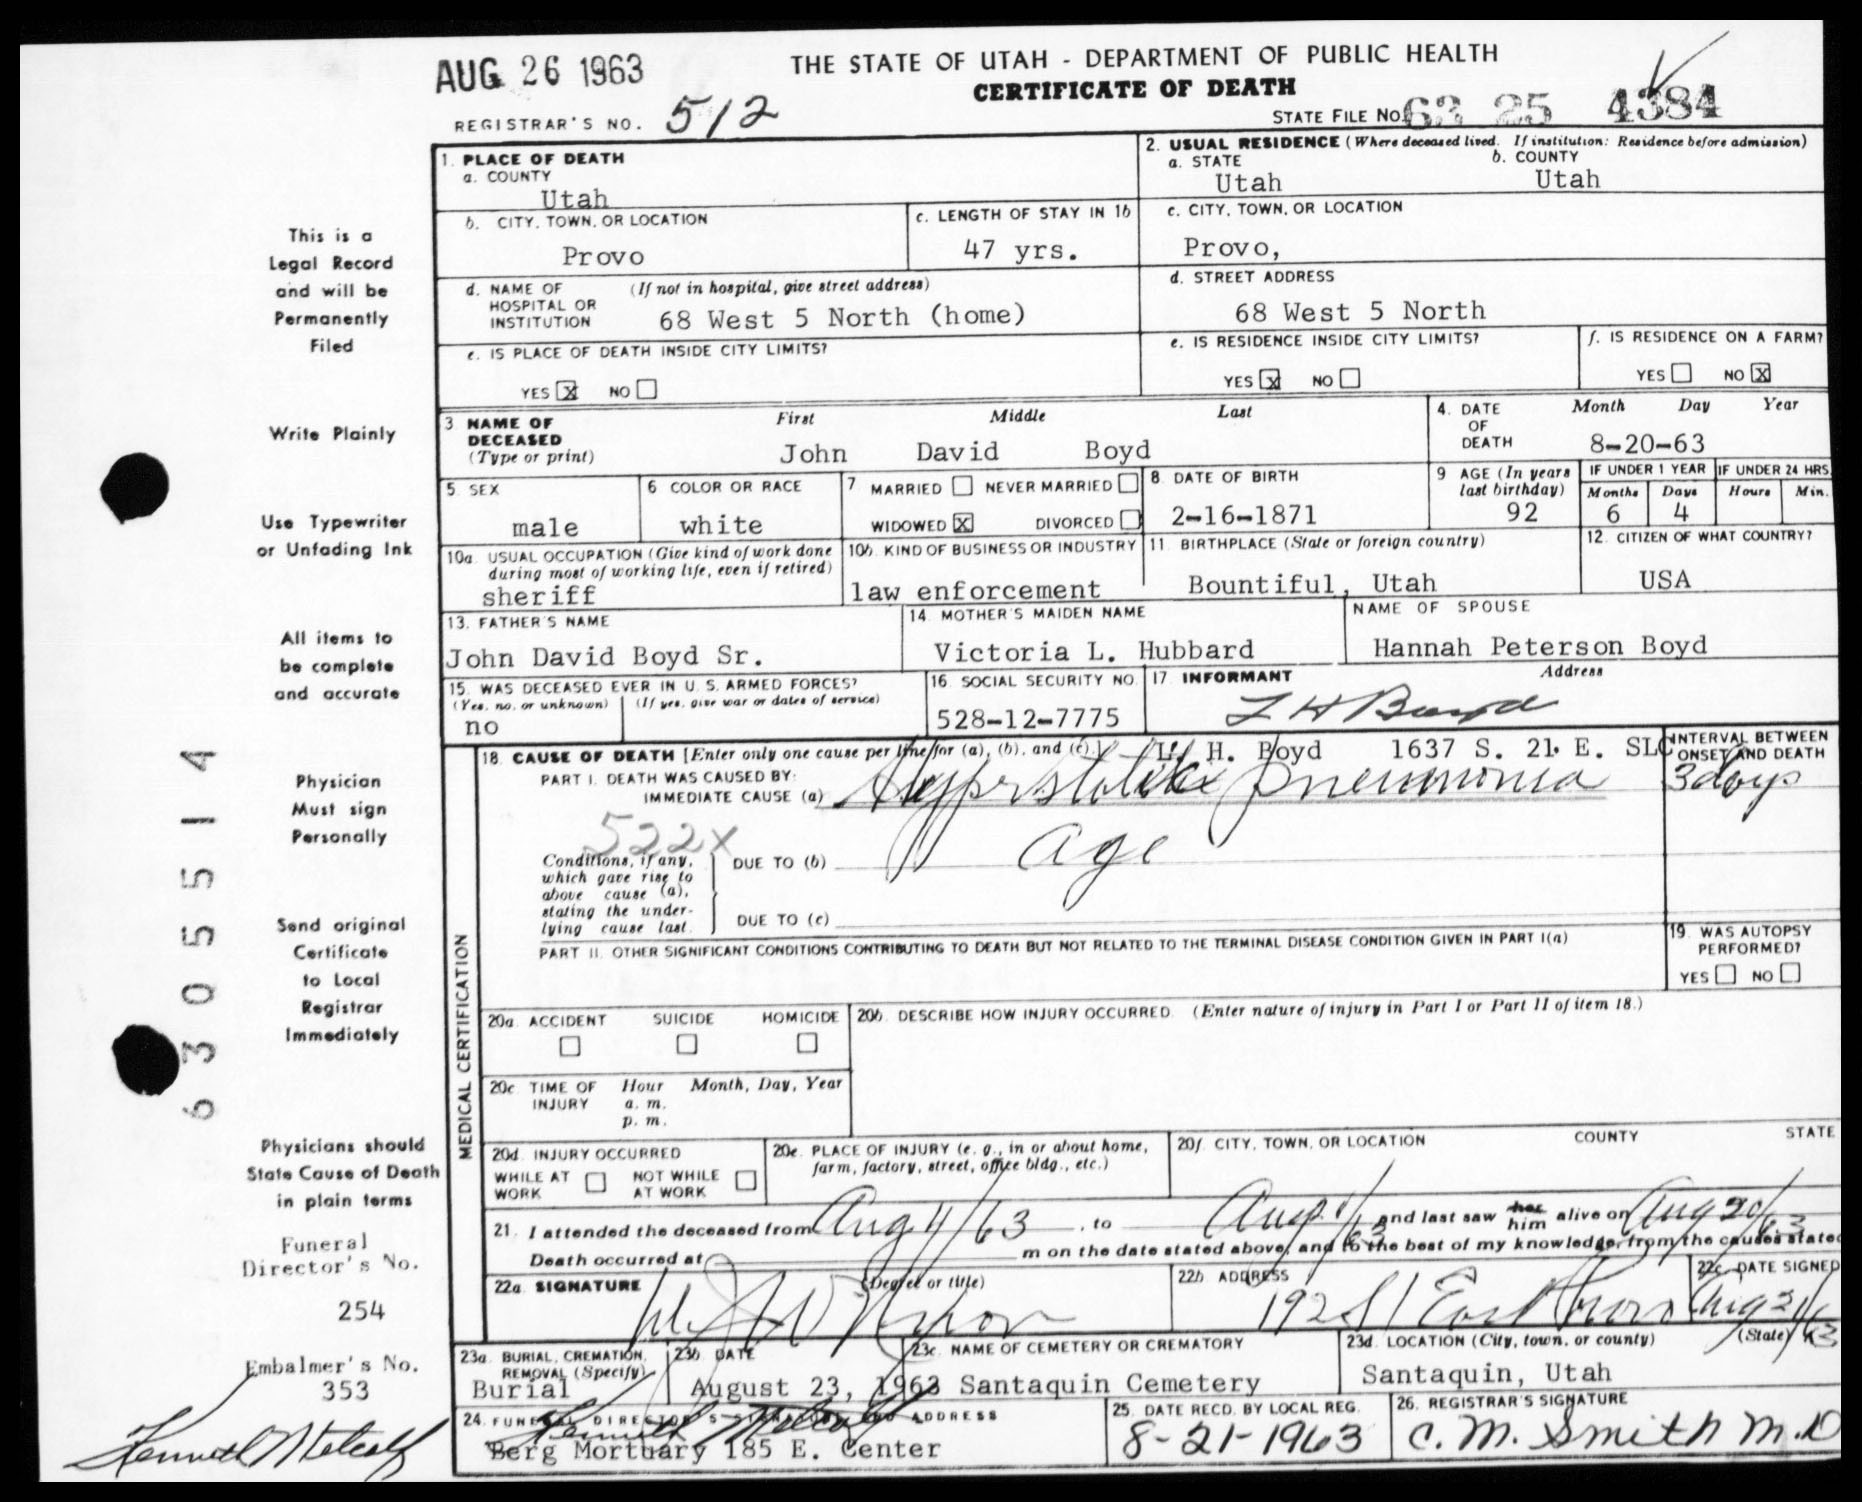 AUG 26 1963
THE STATE OF UTAH - DEPARTMENT OF PUBLIC HEALTH
CERTIFICATE OF DEATH
REGISTRAR'S NO. 512
STATE FILE NO. 63 25 4384
This is a
Legal Record
and will be
Permanently
Filed
Write Plainly
Use Typewriter
or Unfading Ink
All items to
be complete
and accurate
Physician
Must sign
Personally
Send original
Certificate
to Local
Registrar
Immediately
Physicians should
State Cause of Death
in plain terms
Funeral
Director's No.
254
Embalmer's No.
353
Kenneth Metcalf
630551 4
1. PLACE OF DEATH
a. COUNTY
Utah
2. USUAL RESIDENCE (Where deceased lived. If institution: Residence before admission)
a. STATE
Utah
b. COUNTY
Utah
b. CITY, TOWN, OR LOCATION
Provo
c. LENGTH OF STAY IN 1b
47 yrs.
c. CITY, TOWN, OR LOCATION
Provo,
d. NAME OF HOSPITAL OR INSTITUTION (If not in hospital, give street address)
68 West 5 North (home)
d. STREET ADDRESS
68 West 5 North
e. IS PLACE OF DEATH INSIDE CITY LIMITS?
YES X NO
e. IS RESIDENCE INSIDE CITY LIMITS?
YES X NO
f. IS RESIDENCE ON A FARM?
YES NO X
3 NAME OF DECEASED (Type or print)
First Middle Last
John David Boyd
4. DATE OF DEATH Month Day Year
8-20-63
5. SEX
male
6 COLOR OR RACE
white
7 MARRIED NEVER MARRIED
WIDOWED X DIVORCED
8. DATE OF BIRTH
2-16-1871
9 AGE (In years last birthday)
92
IF UNDER 1 YEAR
Months Days
6 4
IF UNDER 24 HRS.
Hours Min.
10a. USUAL OCCUPATION (Give kind of work done during most of working life, even if retired)
sheriff
10b. KIND OF BUSINESS OR INDUSTRY
law enforcement
11. BIRTHPLACE (State or foreign country)
Bountiful, Utah
12. CITIZEN OF WHAT COUNTRY?
USA
13. FATHER'S NAME
John David Boyd Sr.
14. MOTHER'S MAIDEN NAME
Victoria L. Hubbard
NAME OF SPOUSE
Hannah Peterson Boyd
15. WAS DECEASED EVER IN U. S. ARMED FORCES?
(Yes, no, or unknown) (If yes, give war or dates of service)
no
16. SOCIAL SECURITY NO.
528-12-7775
17. INFORMANT Address
L H Boyd
L. H. Boyd 1637 S. 21 E. SLC
MEDICAL CERTIFICATION
18. CAUSE OF DEATH [Enter only one cause per line for (a), (b), and (c).]
INTERVAL BETWEEN ONSET AND DEATH
PART I. DEATH WAS CAUSED BY:
IMMEDIATE CAUSE (a) Hypostatic pneumonia
3 days
522X
Conditions, if any, which gave rise to above cause (a), stating the underlying cause last.
DUE TO (b) age
DUE TO (c)
PART II. OTHER SIGNIFICANT CONDITIONS CONTRIBUTING TO DEATH BUT NOT RELATED TO THE TERMINAL DISEASE CONDITION GIVEN IN PART I(a)
19. WAS AUTOPSY PERFORMED?
YES NO
20a. ACCIDENT SUICIDE HOMICIDE
20b. DESCRIBE HOW INJURY OCCURRED. (Enter nature of injury in Part I or Part II of item 18.)
20c. TIME OF INJURY Hour Month, Day, Year
a. m.
p. m.
20d. INJURY OCCURRED
WHILE AT WORK NOT WHILE AT WORK
20e. PLACE OF INJURY (e. g., in or about home, farm, factory, street, office bldg., etc.)
20f. CITY, TOWN, OR LOCATION COUNTY STATE
21. I attended the deceased from Aug 4/63, to Aug /63 and last saw her him alive on Aug 20/63
Death occurred at m on the date stated above, and to the best of my knowledge, from the causes stated
22a. SIGNATURE (Degree or title)
22b. ADDRESS
192 S 1 East Provo
22c. DATE SIGNED
Aug 21/63
23a. BURIAL, CREMATION, REMOVAL (Specify)
Burial
23b. DATE
August 23, 1963
23c. NAME OF CEMETERY OR CREMATORY
Santaquin Cemetery
23d. LOCATION (City, town, or county) (State)
Santaquin, Utah
24. FUNERAL DIRECTOR'S SIGNATURE AND ADDRESS
Kenneth Metcalf
Berg Mortuary 185 E. Center
25. DATE RECD. BY LOCAL REG.
8-21-1963
26. REGISTRAR'S SIGNATURE
C. M. Smith M.D